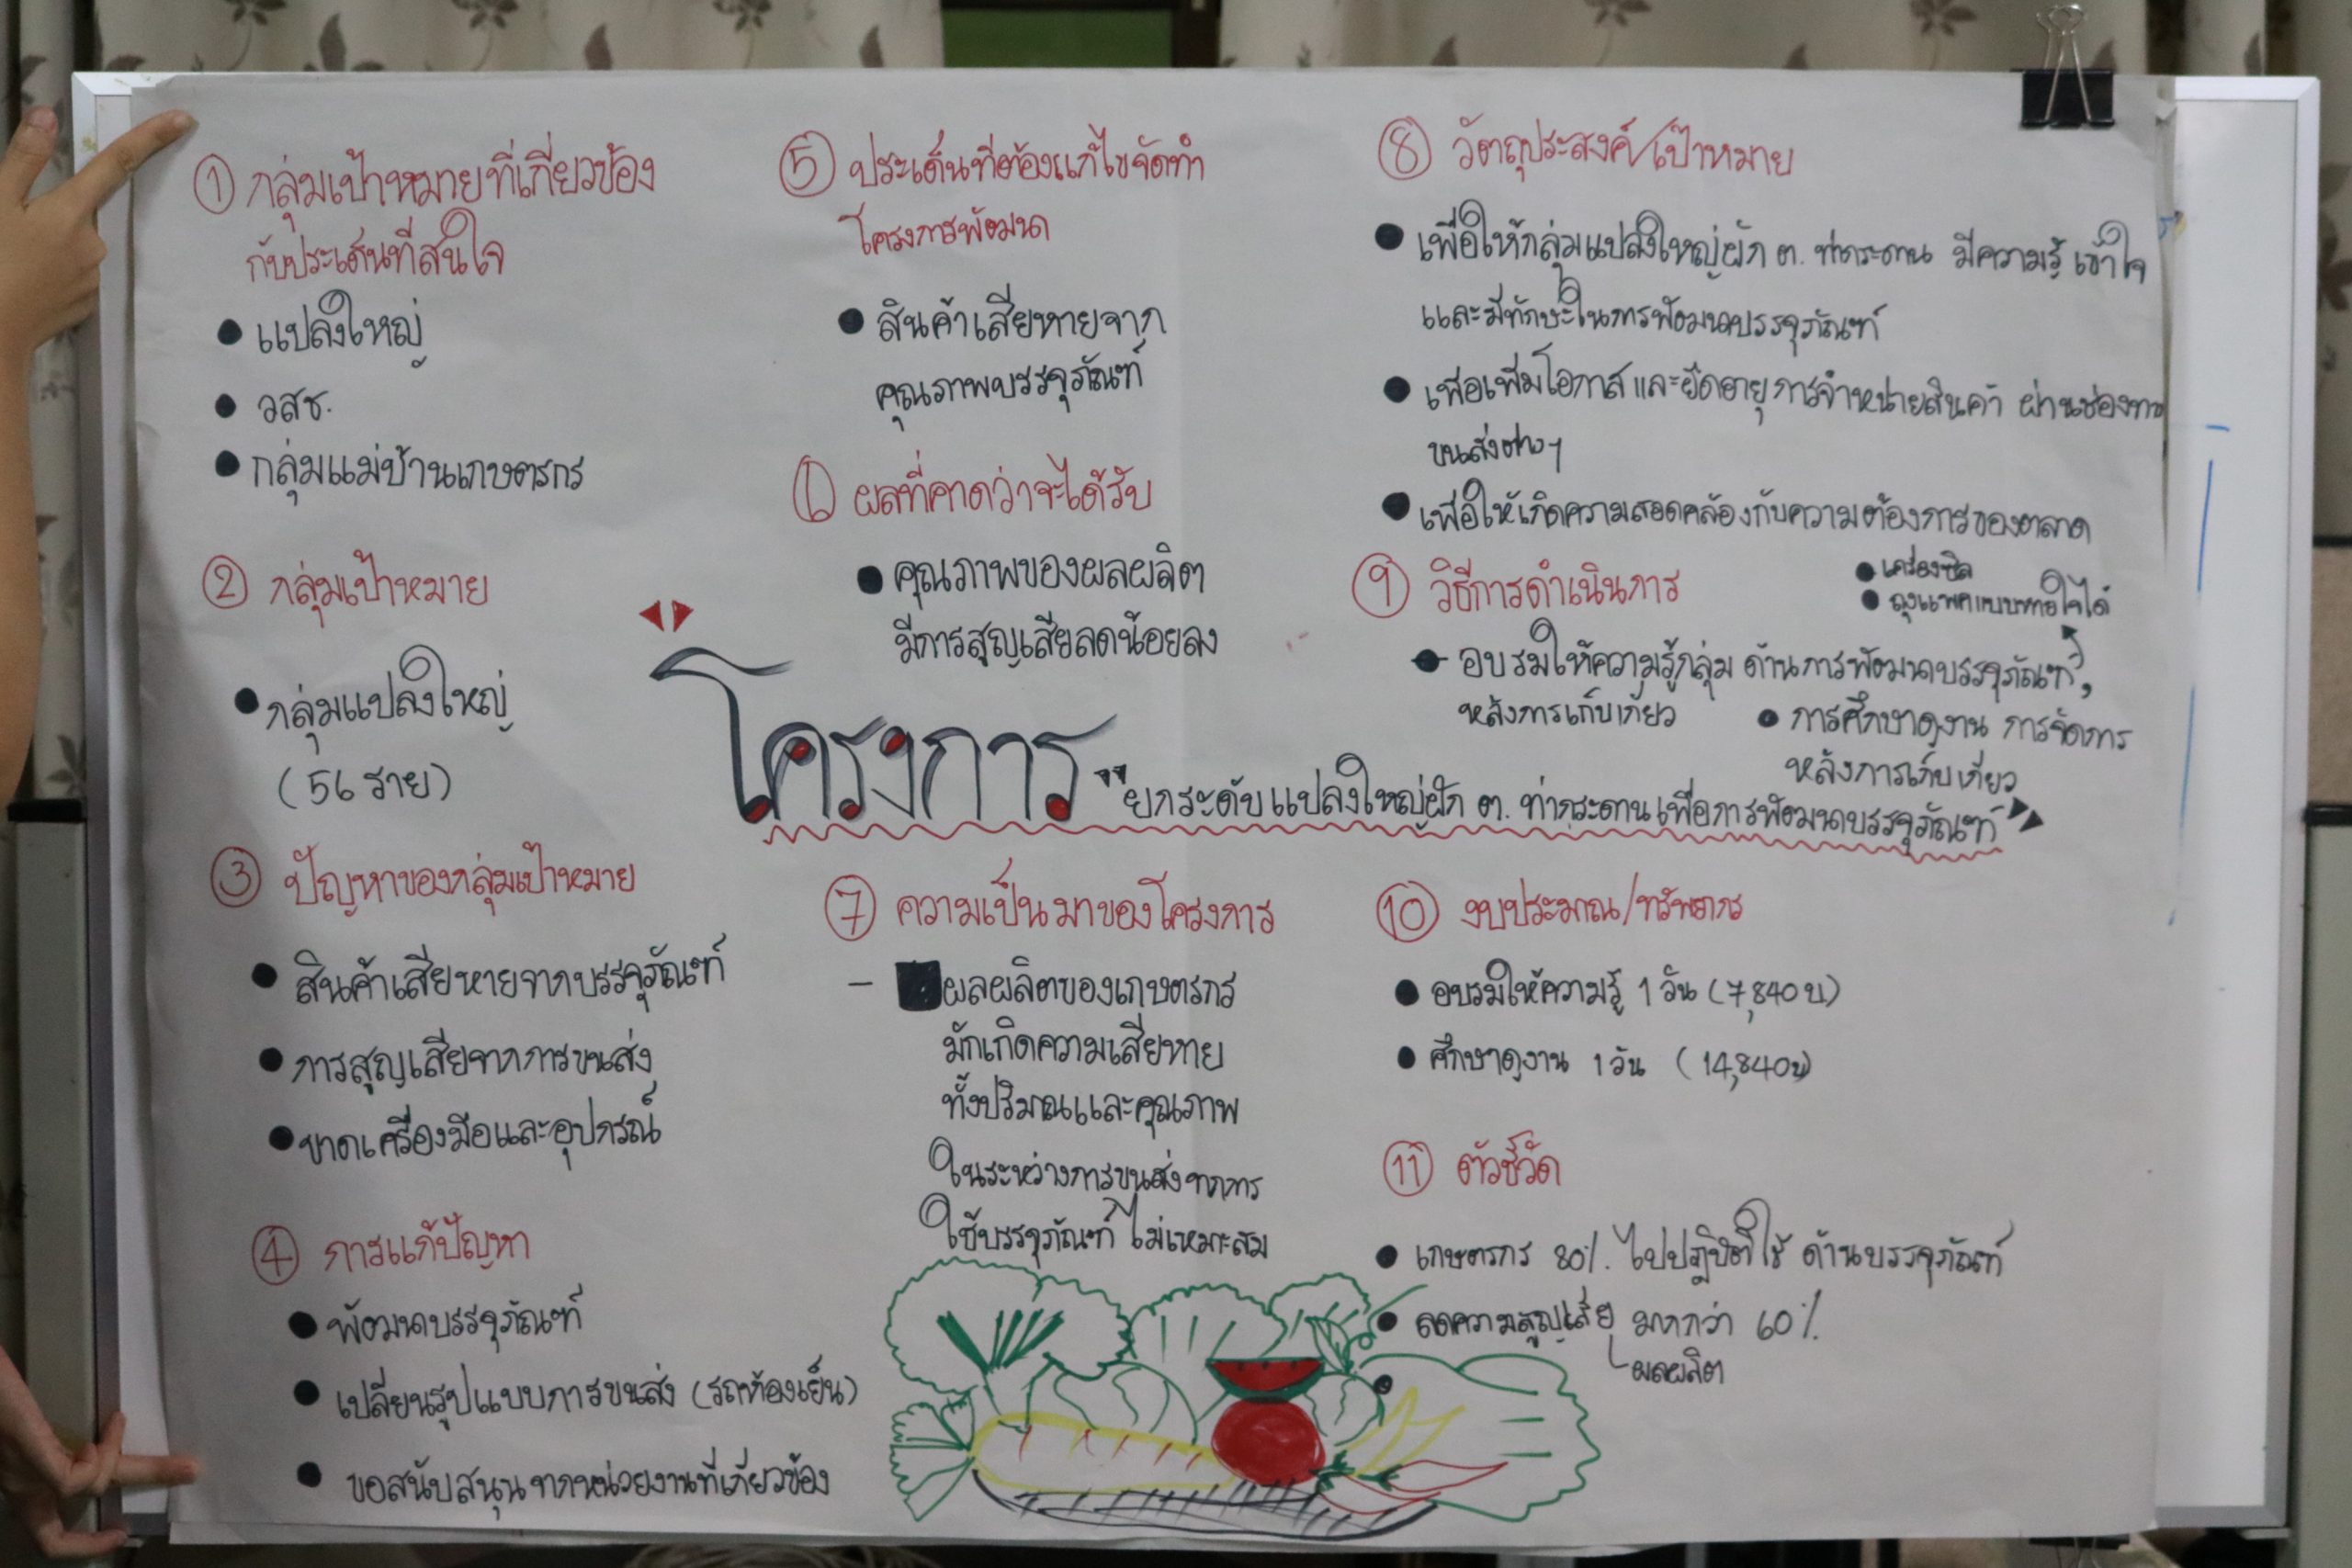 ① กลุ่มเป้าหมายที่เกี่ยวข้อง
กับประเด็นที่สนใจ
● แปลงใหญ่
● วสช.
● กลุ่มแม่บ้านเกษตรกร
② กลุ่มเป้าหมาย
● กลุ่มแปลงใหญ่
(56 ราย)
③ ปัญหาของกลุ่มเป้าหมาย
● สินค้าเสียหายจากบรรจุภัณฑ์
● การสูญเสียจากการขนส่ง
● ขาดเครื่องมือและอุปกรณ์
④ การแก้ปัญหา
● พัฒนาบรรจุภัณฑ์
● เปลี่ยนรูปแบบการขนส่ง (รถห้องเย็น)
● ขอสนับสนุนจากหน่วยงานที่เกี่ยวข้อง
⑤ ประเด็นที่ต้องแก้ไขจัดทำ
โครงการพัฒนา
● สินค้าเสียหายจาก
คุณภาพบรรจุภัณฑ์
⑥ ผลที่คาดว่าจะได้รับ
● คุณภาพของผลผลิต
มีการสูญเสียลดน้อยลง
โครงการ "ยกระดับแปลงใหญ่ผัก ต. ท่ากระดานเพื่อการพัฒนาบรรจุภัณฑ์"
⑦ ความเป็นมาของโครงการ
- ผลผลิตของเกษตรกร
มักเกิดความเสียหาย
ทั้งปริมาณและคุณภาพ
ในระหว่างการขนส่งจากการ
ใช้บรรจุภัณฑ์ ไม่เหมาะสม
⑧ วัตถุประสงค์/เป้าหมาย
● เพื่อให้กลุ่มแปลงใหญ่ผัก ต. ท่ากระดาน มีความรู้ เข้าใจ
และมีทักษะในการพัฒนาบรรจุภัณฑ์
● เพื่อเพิ่มโอกาสและยืดอายุการจำหน่ายสินค้า ผ่านช่องทาง
ขนส่งต่างๆ
● เพื่อให้เกิดความสอดคล้องกับความต้องการของตลาด
⑨ วิธีการดำเนินการ
● เครื่องซีล
● ถุงแพคแบบหายใจได้
● อบรมให้ความรู้กลุ่ม ด้านการพัฒนาบรรจุภัณฑ์,
หลังการเก็บเกี่ยว
● การศึกษาดูงาน การจัดการ
หลังการเก็บเกี่ยว
⑩ งบประมาณ/ทรัพยากร
● อบรมให้ความรู้ 1 วัน (7,840บ)
● ศึกษาดูงาน 1 วัน (14,840บ)
⑪ ตัวชี้วัด
● เกษตรกร 80%. ไปปฏิบัติใช้ ด้านบรรจุภัณฑ์
● ลดความสูญเสีย มากกว่า 60%
ผลผลิต